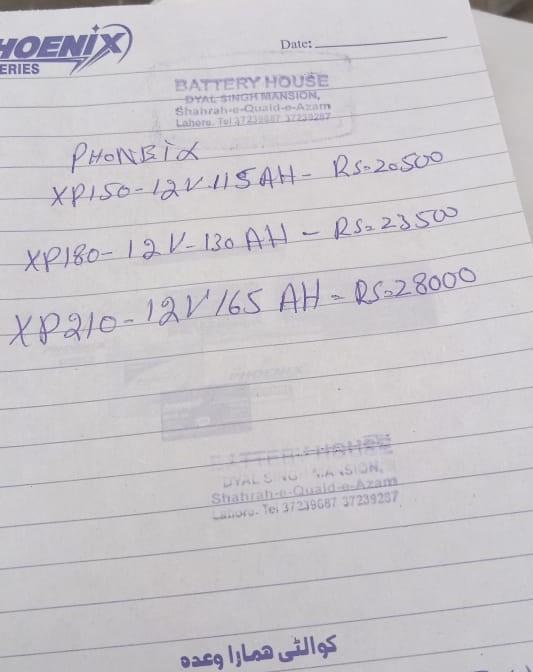 HOENIX
ERIES
Date:
BATTERY HOUSE
DYAL SINGH MANSION,
Shahrah-e-Quaid-e-Azam
Lahore. Tel 37239687 37239287
PHONEiX
XP150-12V.115AH- RS=20500
XP180-12V-130AH-RS=23500
XP210-12V165 AH=RS=28000
PHOENIX
BATTERY HOUSE
DYAL SINGH MANSION,
Shahrah-e-Quaid-e-Azam
Lahore. Tel 37239687 37239287
کوالٹی همارا وعدہ